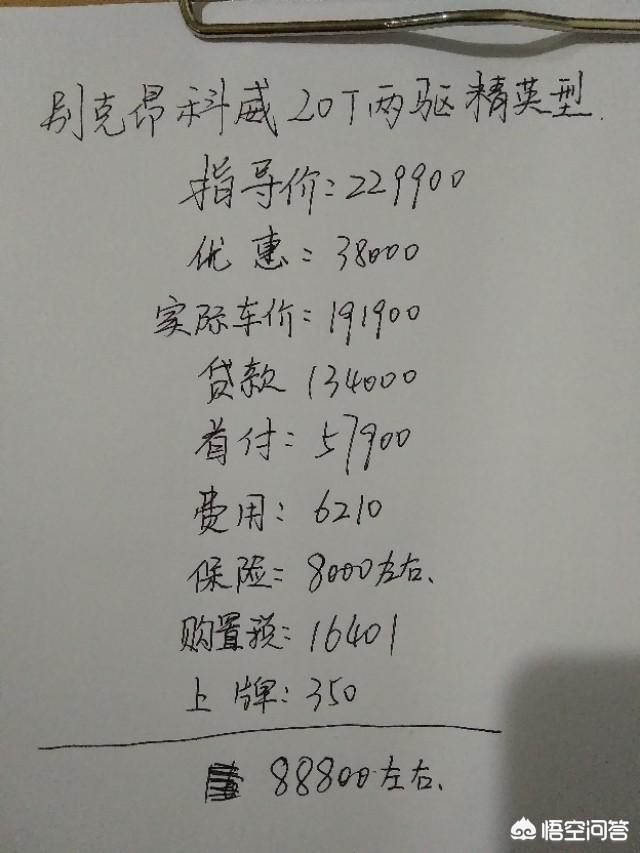 别克昂科威20T两驱精英型.
指导价:229900
优惠:38000
实际车价:191900
贷款 134000
首付:57900
费用:6210
保险:8000左右.
购置税:16401
上牌:350
88800左右.
悟空问答